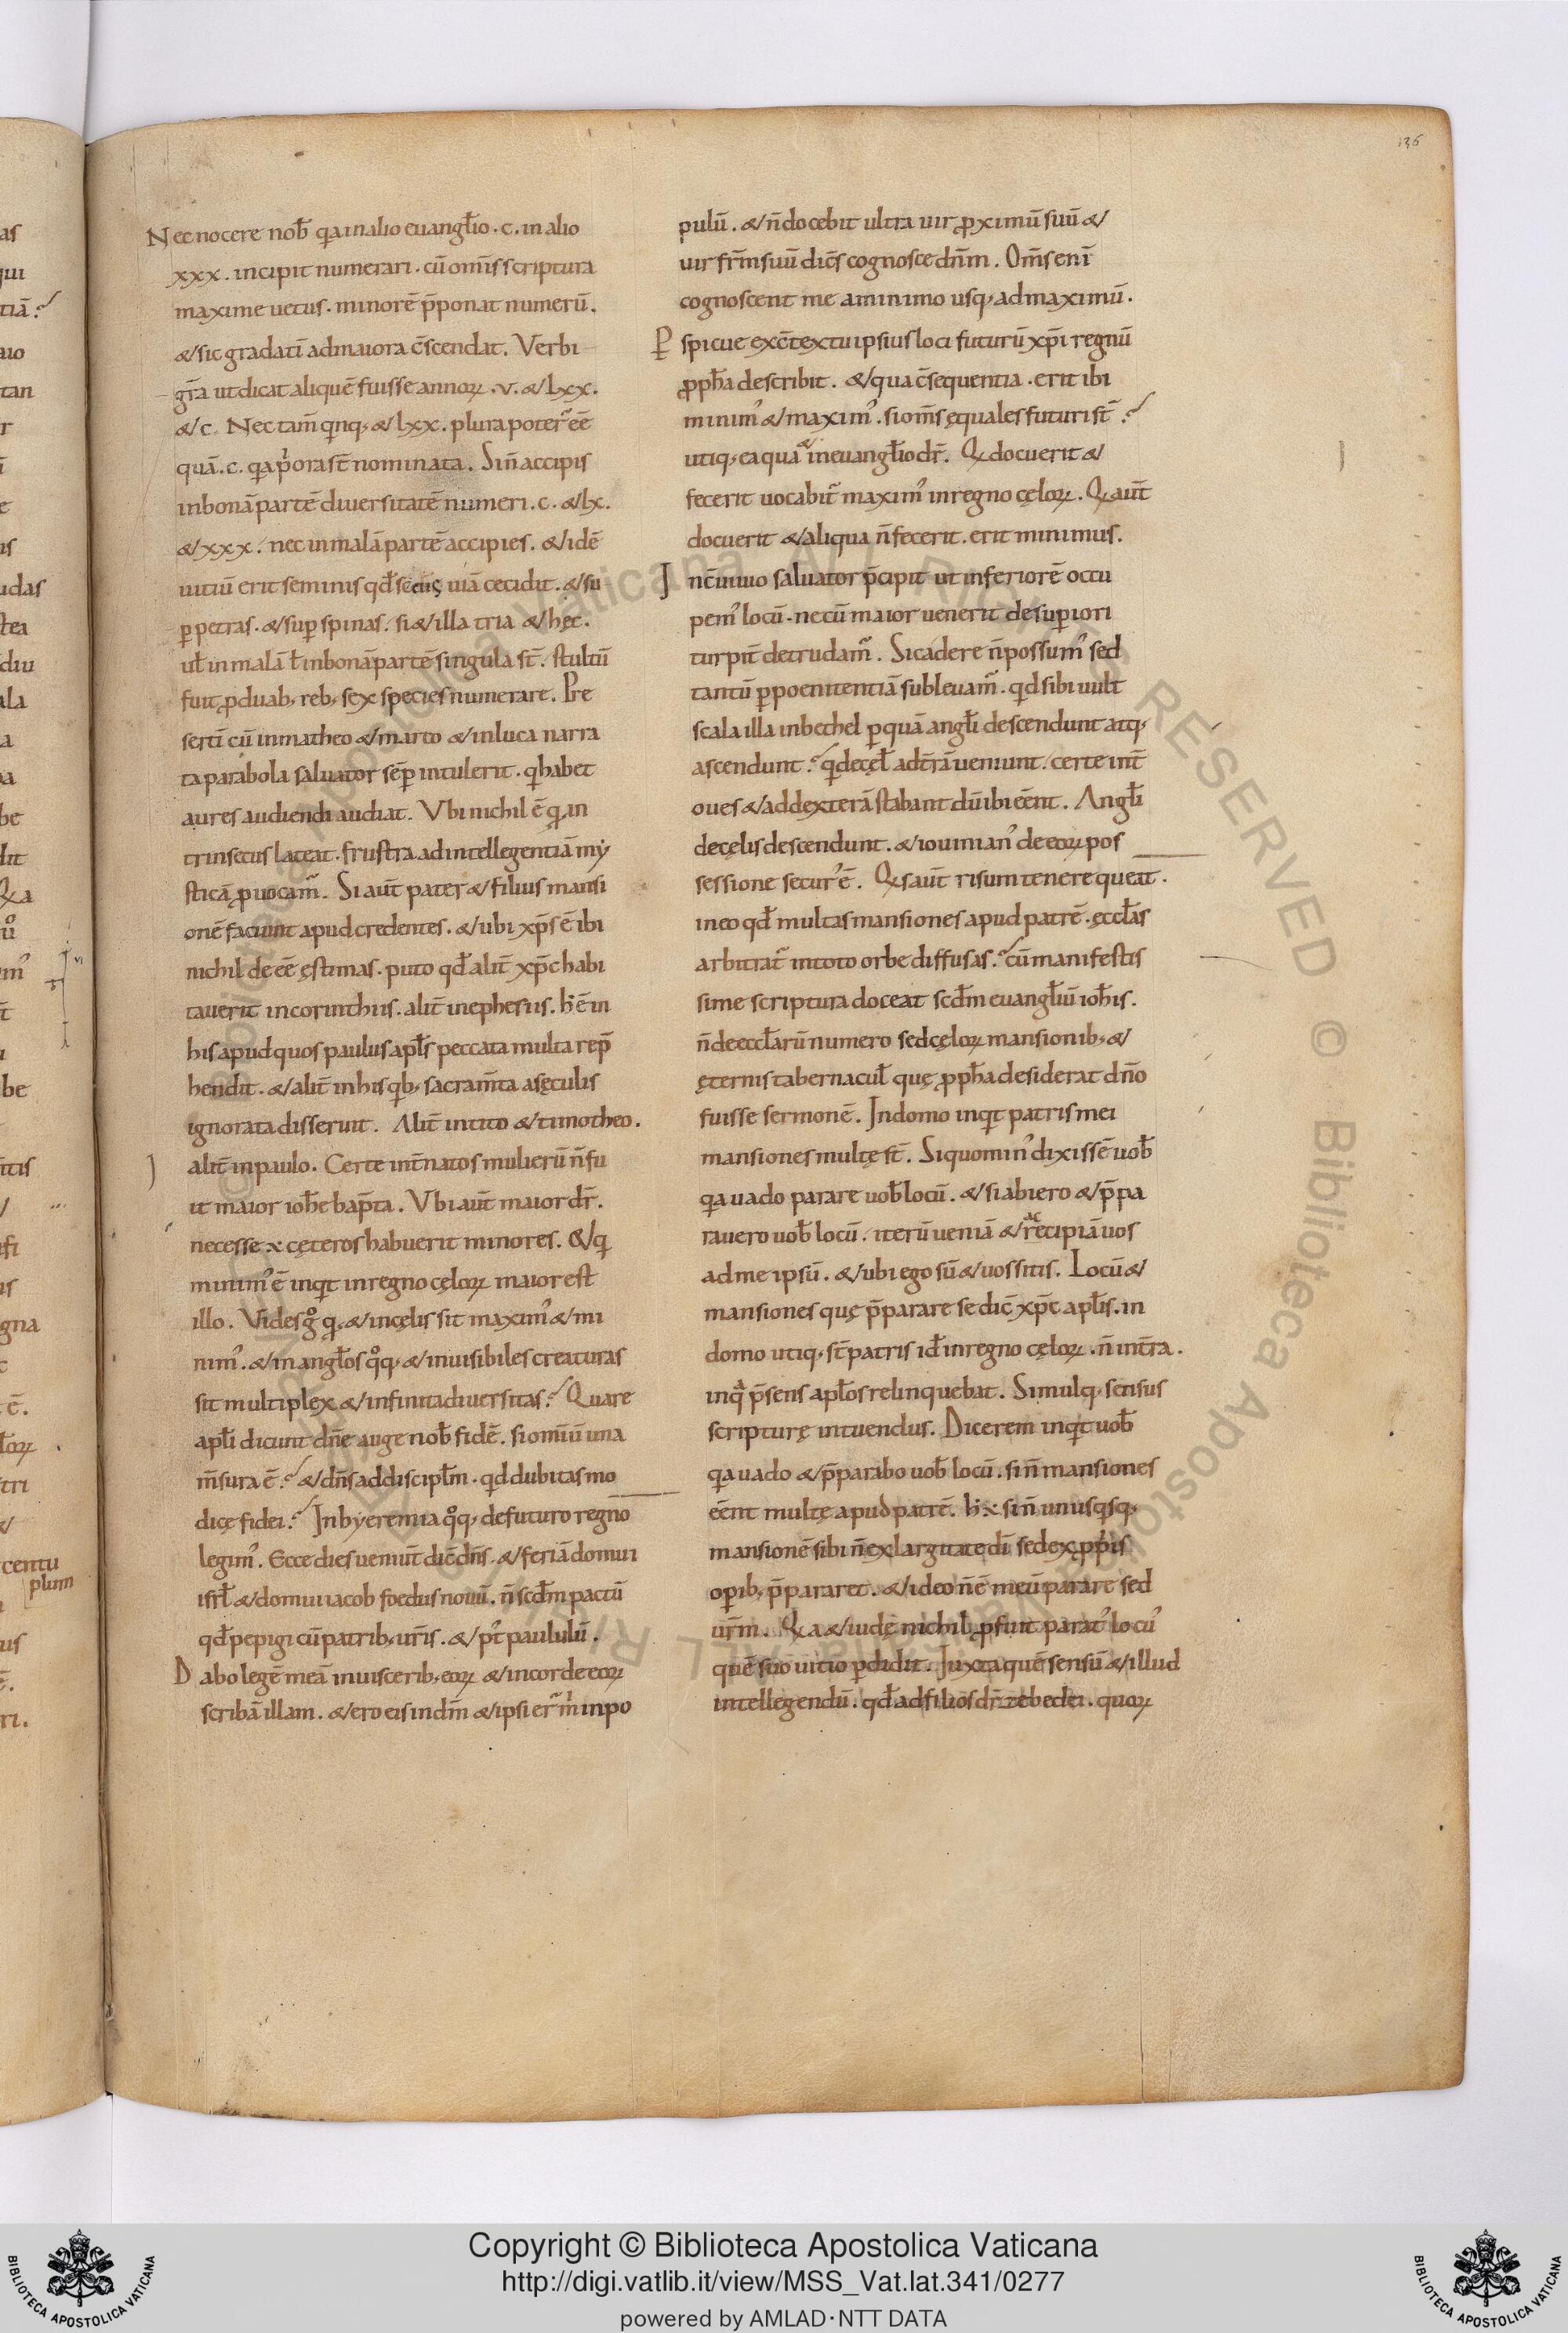 136
Nec nocere nob̄ q̄a in alio euangl̄io . c . in alio
xxx . incipit numerari . cū om̄is scriptura
maxime uetus . minorē p̄ponat numerū .
& sic gradatī ad maiora c̄scendat . Verbi
gr̄a ut dicat aliquē fuisse annoꝝ . v . & lxx .
& c . Nec tam̄ qinq; & lxx . plura poter̄ eē
quā . c . q̄a p̍ora st̄ nominata . Sin̄ accipis
in bonā partē diuersitatē numeri . c . & lx .
& xxx . nec in malā partē accipies . & idē
uitiū erit seminis qd̄ secus uiā cecidit . & su
ꝑ petras . & suꝑ spinas . si & illa tria & hęc .
ul̄ in malā l̄ in bonā partē singula st̄ . stultū
fuit ꝓ duab; reb; sex species numerare . Pre
sertī cū in matheo & marco & in luca narra
ta parabola saluator sēp intulerit . q̍ habet
aures audiendi audiat . Vbi nichil ē q̄ in
trinsecus lateat . frustra ad intellegentiā my
sticā ꝓuocam̄ . Si aut̄ pater & filius mansi
onē faciunt apud credentes . & ubi xp̄s ē ibi
nichil deeē ęstimas . puto qd̄ alit̄ xp̄c habi
tauerit in corinthiis . alit̄ in ephesiis . h̄ ē in
his apud quos paulus apl̄s peccata multa rep̄
hendit . & alit̄ in his qb; sacram̄ta a sęculis
ignorata disseruit . Alit̄ in tito & timotheo .
alit̄ in paulo . Certe int̄ natos mulierū n̄ fu
it maior ioh̄e bap̄ta . Vbi aut̄ maior dr̄ .
necesse ÷ cęteros habuerit minores . & q̍
minim᾽ ē inqt in regno cęloꝝ maior est
illo . Vides g̊ q̄ & in cęlis sit maxim᾽ & mi
nim᾽ . & in angl̄os q̊q; & inuisibiles creaturas
sit multiplex & infinita diuersitas ? Quare
apl̄i dicunt dn̄e auge nob̄ fidē . si om̄iū una
m̄sura ē ? & dn̄s ad discipl̄m . qd dubitas mo
dicę fidei ? In hyeremia q̊q; de futuro regno
legim᾽ . Ecce dies ueniūt dic̄ dn̄s . & feriā domui
isrl̄ & domui iacob foedus nouū . n̄ scd̄m pactū
qd̄ pepigi cū patrib; ur̄is . & p᾽t paululū .
Dabo legē meā in uiscerib; eoꝝ & in corde eoꝝ
scribā illam . & ero eis in dm̄ & ipsi er̄ m̍ in po
pulū . & n̄ docebit ultra uir ꝓximū suū &
uir fr̄m suū dic̄s cognosce dn̄m . Om̄s enī
cognoscent me a minimo usq; ad maximū .
Ꝑspicue ex c̄textu ipsius loci futurū xp̄i regnū
ꝓph̄a describit . & qua c̄sequentia . erit ibi
minim᾽ & maxim᾽ . si om̄s ęquales futuri st̄ ?
utiq; ea qua & in euangl̄io dr̄ . Q̍ docuerit &
fecerit uocabit̄ maxim᾽ in regno cęloꝝ . Q̍ aut̄
docuerit & aliqua n̄ fecerit . erit minimus .
In c̄uiuio saluator p̄cipit ut inferiorē occu
pem᾽ locū . ne cū maior uenerit de superiori
turpit̄ detrudam̄ . Si cadere n̄ possum᾽ sed
tantū ꝑ poenitentiā subleuam̄ . qd sibi uult
scala illa in bethel ꝑ quā angl̄i descendunt atq;
ascendunt ? q̍ de cęl̄ ad t̄rā ueniunt . certe int̄
oues & ad dexterā stabant dū ibi eēnt . Angl̄i
de cęlis descendunt . & iouinian᾽ de eoꝝ pos
sessione secur᾽ ē . Q̍s aut̄ risum tenere queat .
in eo qd̄ multas mansiones apud patrē . ęccl̄as
arbitrat̄ in toto orbe diffusas ? cū manifestis
sime scriptura doceat scd̄m euangl̄iū ioh̄is .
n̄ de eccl̄arū numero sed cęloꝝ mansionib; &
ęternis tabernacul̄ quę ꝓph̄a desiderat dn̄o
fuisse sermonē . In domo inqt patris mei
mansiones multę st̄ . Si quo min᾽ dixissē uob̄
q̄a uado parare uob̄ locū . & si abiero & p̄pa
rauero uob̄ locū . iterū ueniā & recipiā uos
ad me ipsū . & ubi ego sū & uos sitis . Locū &
mansiones quę p̄parare se dic̄ xp̄c apl̄is . in
domo utiq; st̄ patris id̄ in regno cęloꝝ . n̄ in t̄ra .
in q̄ p̄sens apl̄os relinquebat . Simulq; sensus
scripturę intuendus . Dicerem inqt uob̄
q̄a uado & p̄parabo uob̄ locū . si n̄ mansiones
eēnt multę apud patrē . h̄ ÷ si n̄ unusqsq;
mansionē sibi n̄ ex largitate dī sed ex ꝓp̍is
oꝑib; p̄pararet . & ideo n̄ ē meū parare sed
ur̄m . Q̄a & iudę nichil ꝓfuit parat᾽ locu᾽
quē suo uitio ꝑdidit . Iuxta quē sensū & illud
intellegendū . qd̄ ad filios dr̄ zebedei . quoꝝ
Copyright © Biblioteca Apostolica Vaticana
http://digi.vatlib.it/view/MSS_Vat.lat.341/0277
powered by AMLAD·NTT DATA